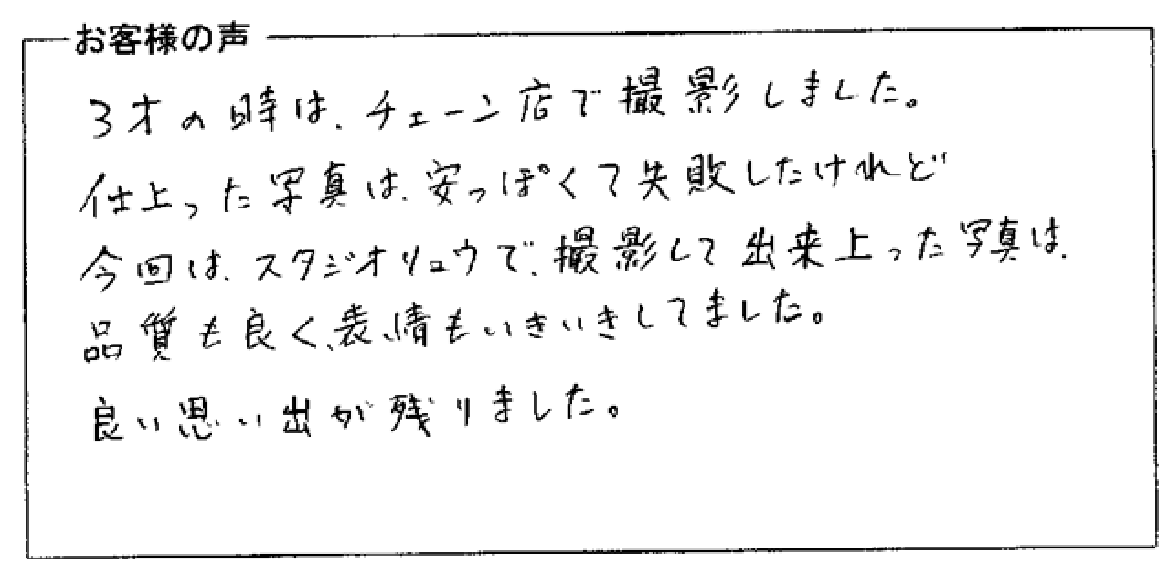 お客様の声
3才の時は、チェーン店で撮影しました。
仕上った写真は、安っぽくて失敗したけれど
今回は、スタジオリュウで、撮影して出来上った写真は、
品質も良く、表情もいきいきしてました。
良い思い出が残りました。